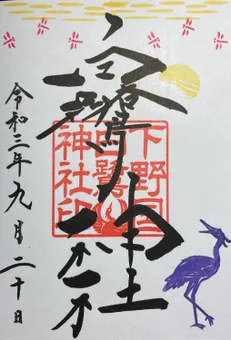 鷺神社
下野国
白鷺
神社印
令和三年九月二十日